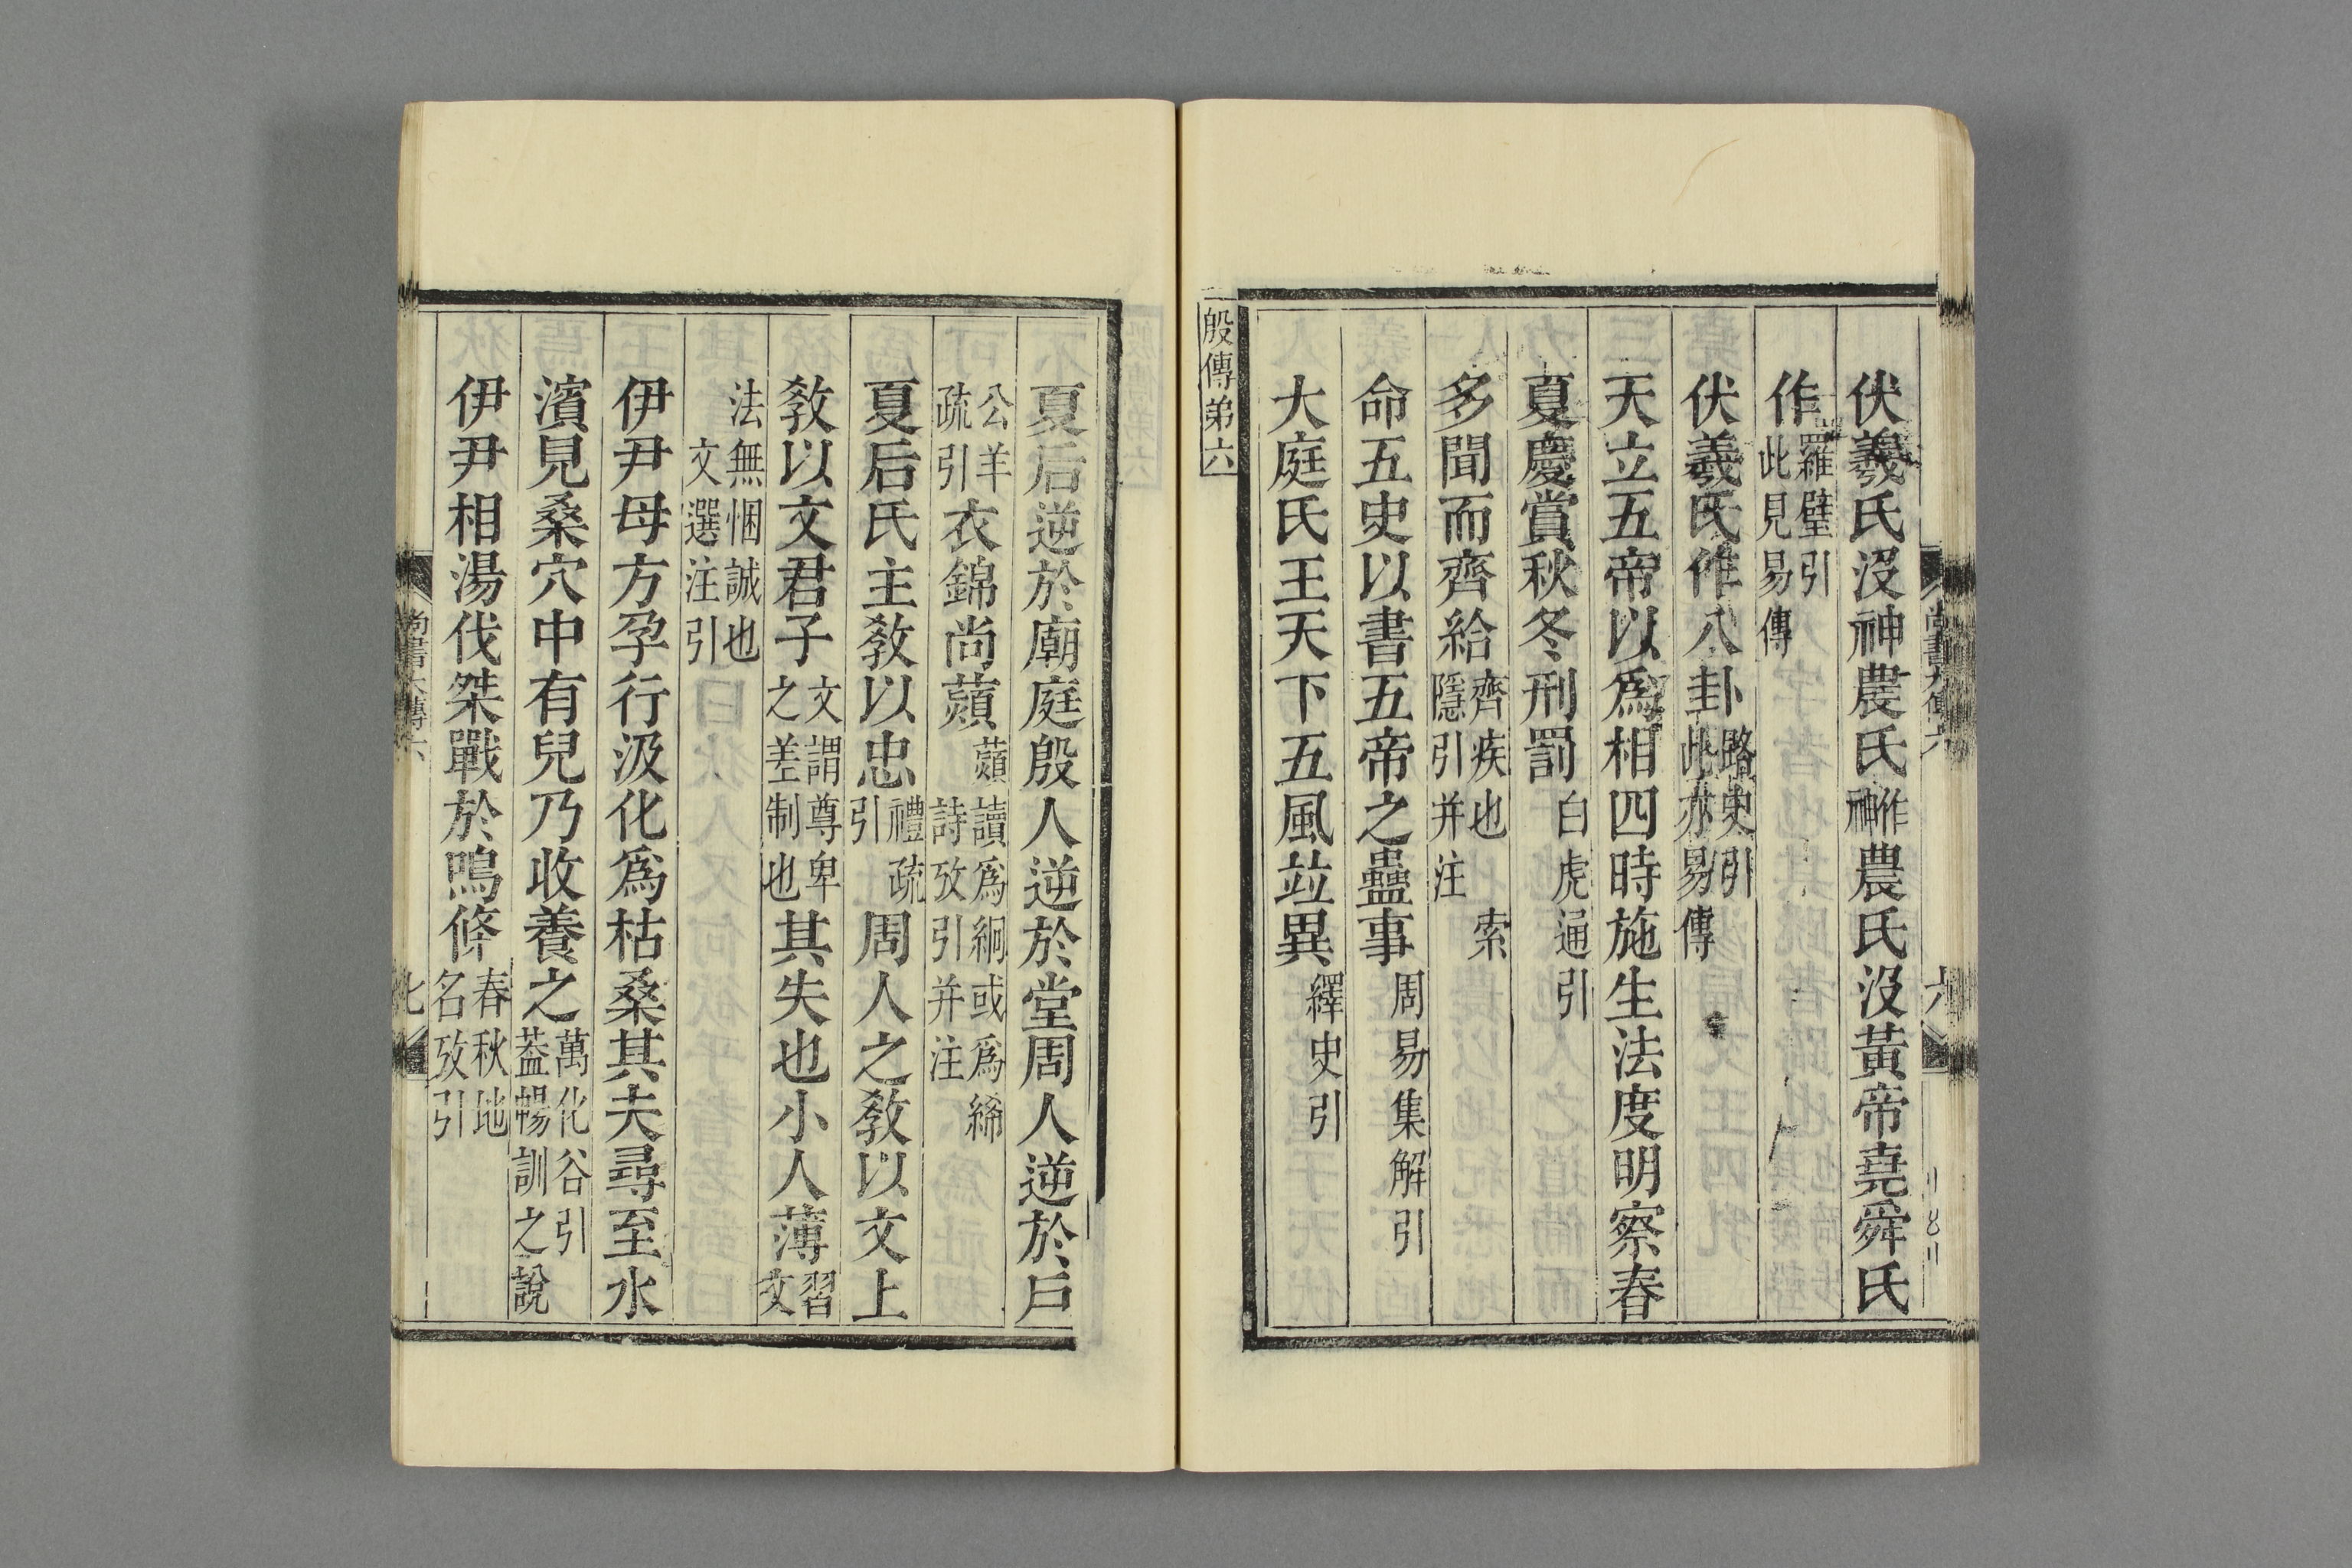 伏羲氏沒神農氏作神農氏沒黃帝堯舜氏
作羅壁引此見易傳
伏羲氏作八卦路史引此亦易傳
天立五帝以爲相四時施生法度明察春
夏慶賞秋冬刑罰白虎通引
多聞而齊給齊疾也索隱引并注
命五史以書五帝之蠱事周易集解引
大庭氏王天下五風竝異繹史引
殷傳弟六
夏后逆於廟庭殷人逆於堂周人逆於戶
公羊疏引衣錦尚蘔蘔讀爲絅或爲絺詩攷引并注
夏后氏主敎以忠禮疏引周人之敎以文上
敎以文君子文謂尊卑之差制也其失也小人薄習文
法無悃誠也文選注引
伊尹母方孕行汲化爲枯桑其夫尋至水
濱見桑穴中有兒乃收養之萬化谷引葢暢訓之說
伊尹相湯伐桀戰於鳴條春秋地名攷引
尚書大傳六
七